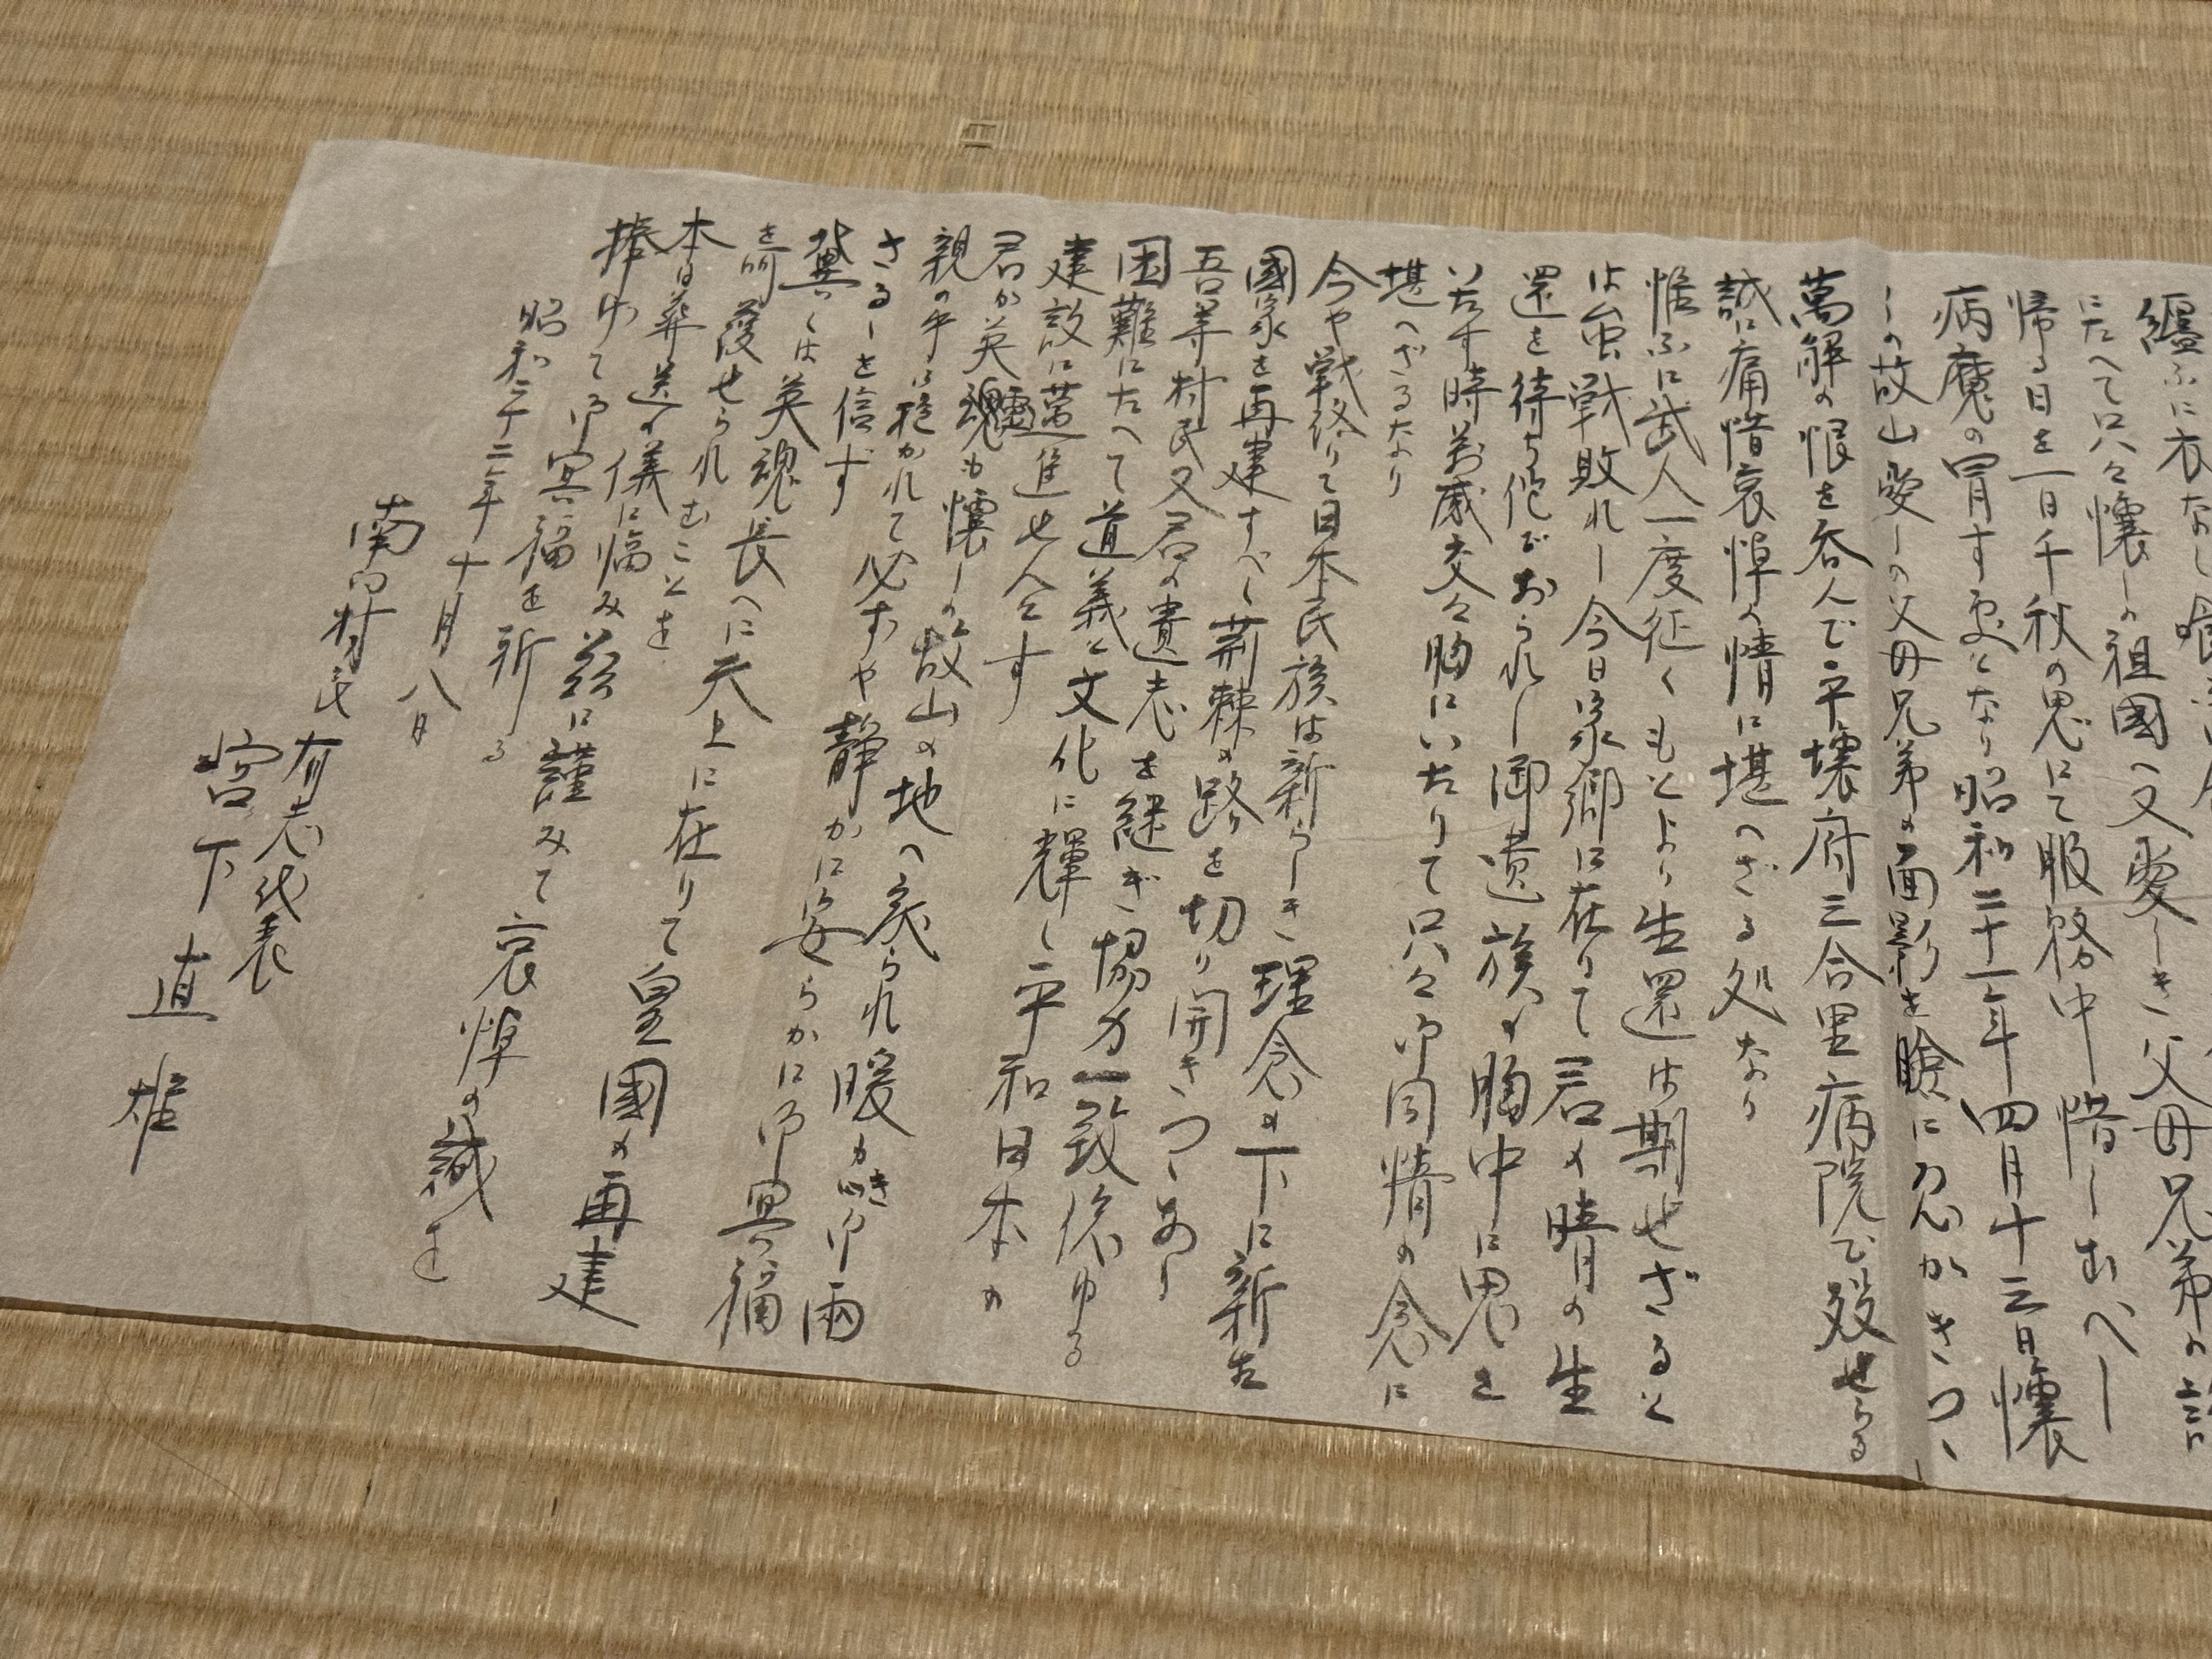 纒ふに衣なし喰
にたへて只々懐しの祖國へ又愛しき父母兄弟の
帰る日を一日千秋の思にて服務中惜しむべし
病魔の冒す処となり昭和二十一年四月十三日懐
しの故山愛しの父母兄弟の面影を瞼に忍がきつゝ
萬解の恨を呑んで平壌府三合里病院で歿せらる
誠に痛惜哀悼の情に堪へざる処なり
惟ふに武人一度征くもとより生還は期せざると
は虽戦敗れし今日家郷に在りて君の晴の生
還を待ち侘びおられし御遺族の胸中に思を
いたす時萬感交々胸にいたりて只々御同情の念に
堪へざるなり
今や戦終りて日本民族は新らしき理念の下に新た
國家を再建すべく荊棘の路を切り開きつゝあり
吾等村民又君の遺志を継ぎ協力一致係ゆる
困難にたへて道義と文化に輝く平和日本の
建設に邁進せんとす
君が英魂霊も懐しの故山の地へ戻られ暖かき御両
親の手に抱かれて必ずや静かに安らかに御冥福
さるゝを信ず
冀くは英魂長へに天上に在りて皇國の再建
を守護せられむことを
本日葬送の儀に臨み茲に謹みて哀悼の誠を
捧げて御冥福を祈る
昭和二十二年十月八日
南
村民有志代表
宮下直雄